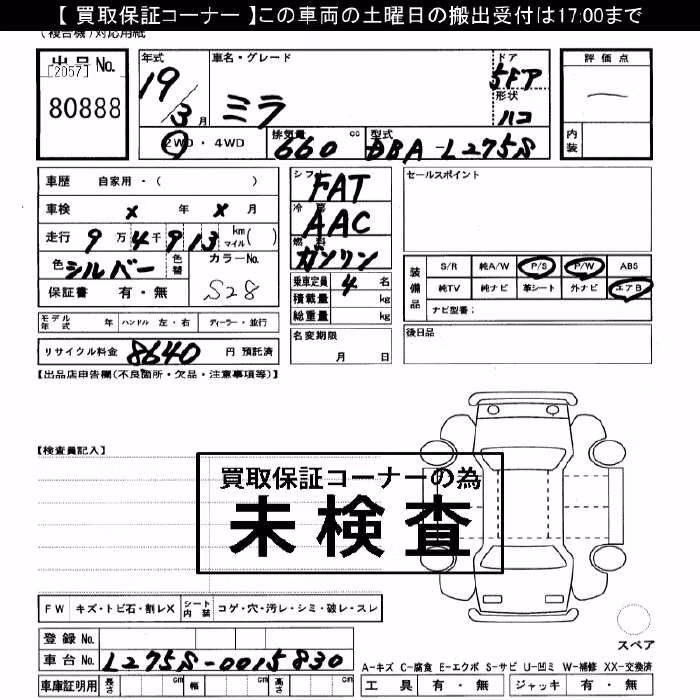 【 買取保証コーナー 】この車両の土曜日の搬出受付は17:00まで
(複合機)対応用紙
出品No.
[2057]
80888
年式 車名・グレード ドア
19 5ドア
3月 ミラ 形状
ハコ
2WD・4WD 排気量 660 cc 型式 DBA-L275S
評価点
内装
車歴 自家用・( )
車検 × 年 × 月
走行 9万4千913 km マイル( )
色 シルバー 色替 カラーNo.
保証書 有・無 S28
モデル年式 年 ハンドル 左・右 ディーラー・並行
リサイクル料金 8640 円 預託済
シフト FAT
冷房 AAC
燃料 ガソリン
乗車定員 4 名
積載量 kg
総重量 kg
名変期限
月 日
セールスポイント
装備品
S/R 純A/W P/S P/W ABS
純TV 純ナビ 革シート 外ナビ エアB
ナビ型番:
後日品
【出品店申告欄(不良箇所・欠品・注意事項等)】
【検査員記入】
買取保証コーナーの為
未検査
FW キズ・トビ石・割レX シート内装 コゲ・穴・汚レ・シミ・破レ・スレ
登録No.
車台No. L275S-0015830
車庫証明用 長さ cm 幅 cm 高さ cm
スペア
A-キズ C-腐食 E-エクボ S-サビ U-凹ミ W-補修 XX-交換済
工具 有・無 ジャッキ 有・無